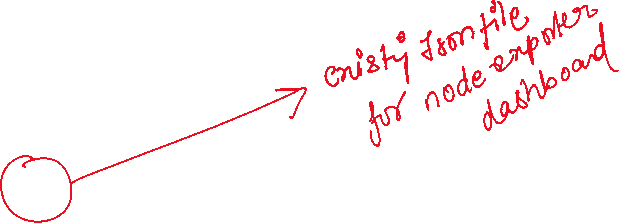 existj Json file
for node exporter
dashboard